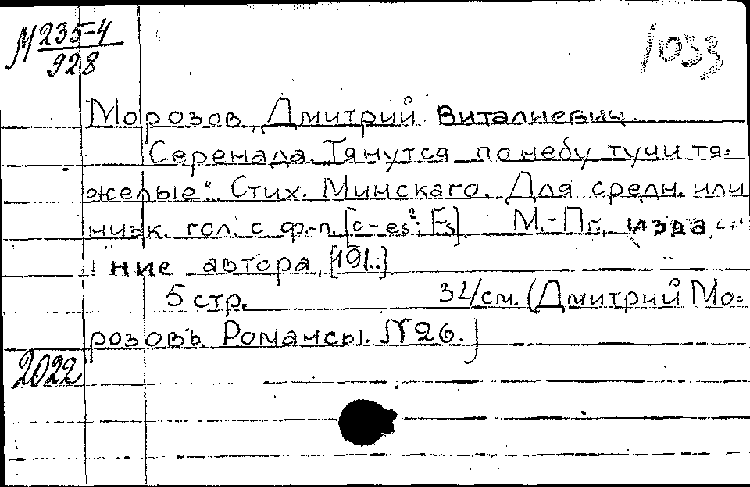 М 235-4
928
1033
Морозов, Дмитрий Виталиевич.
Серенада. Тянутся по небу тучи тя-
желые". Стих. Минскаго. Для средн. или
низк. гол. с ф.-п. [c-es²; Es] М.-Пг., изда
ние автора, [191..]
5 стр. 34 см. (Дмитрий Мо-
розовъ. Романсы. № 26.)
2022